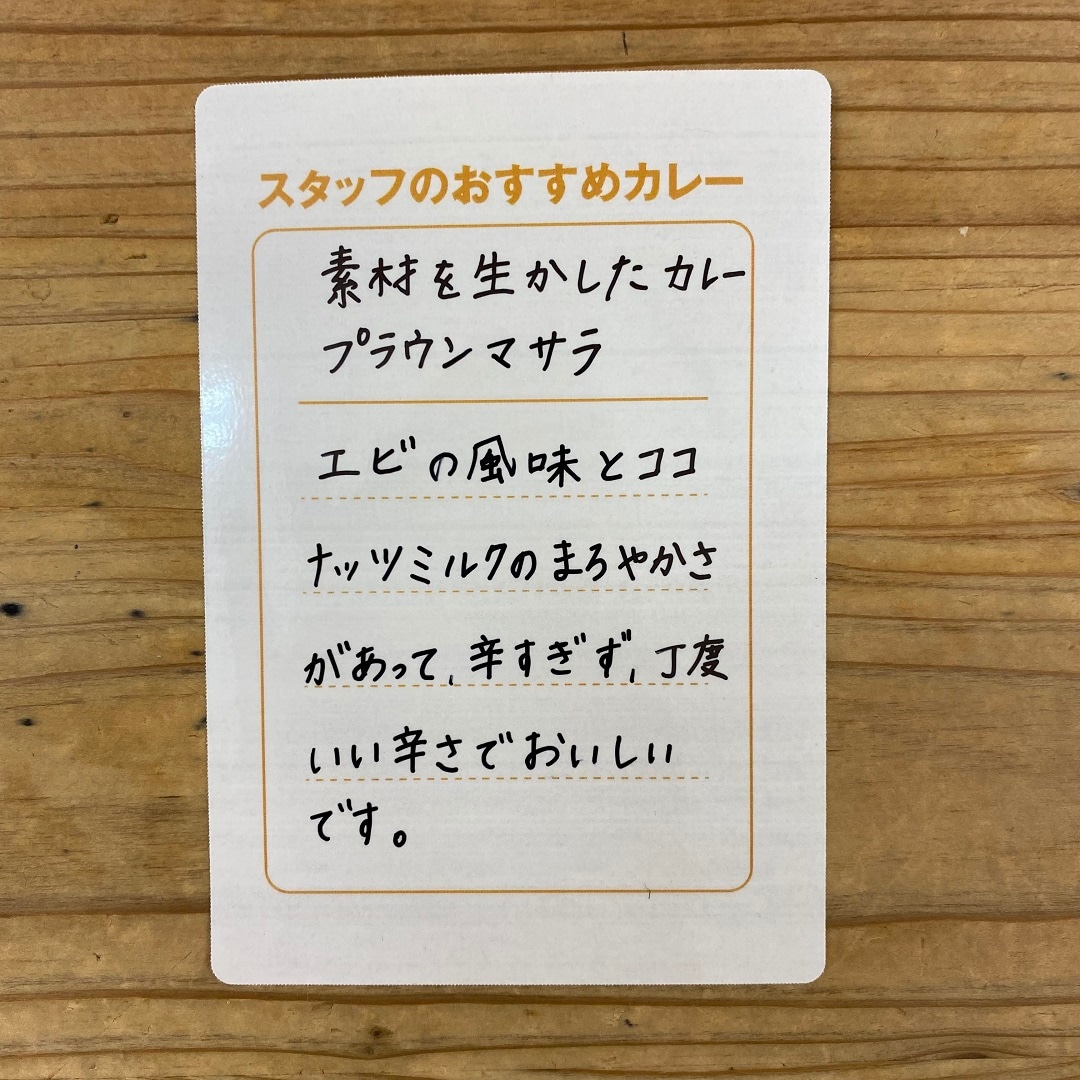 スタッフのおすすめカレー
素材を生かしたカレー
プラウンマサラ
エビの風味とココ
ナッツミルクのまろやかさ
があって、辛すぎず、丁度
いい辛さでおいしい
です。